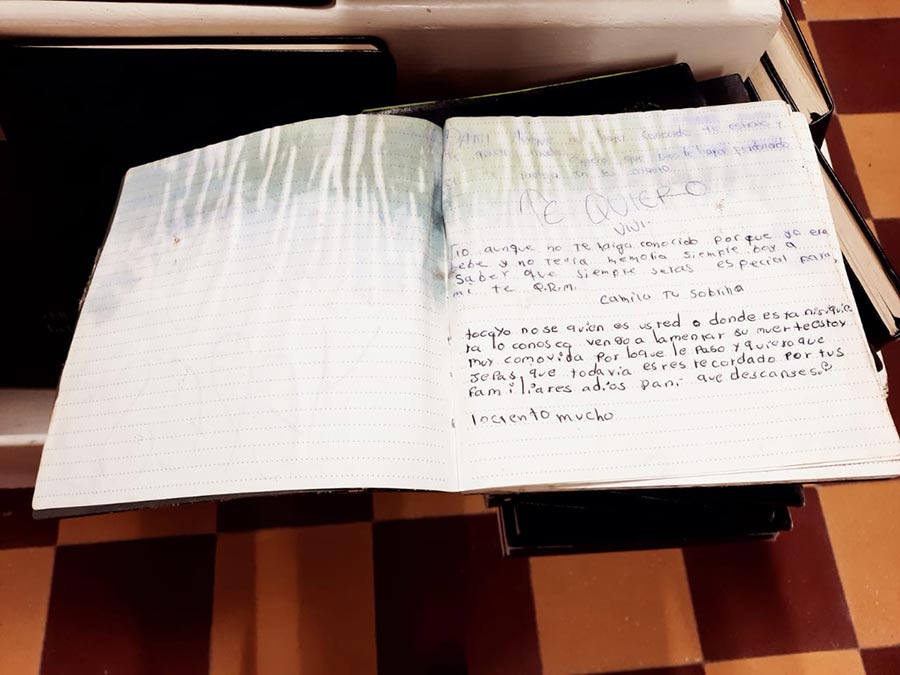 DANI Aunque no haya conocido te extraño y
te quiero mucho. Espero que
TE QUIERO
VIVI.
Tio aunque no te haiga conocido Porque yo era
bebe y no tenia memoria siempre boy a
Saber que siempre seras especial para
mi te Q.R.M.
Camila Tu Sobrina
tocayo nose quien es usred o donde esta nisiquie
ra lo conosco vengo a lamentar su muerte estoy
muy comovida por loque le Paso y quiero que
sepas que todavia esres recordado por tus
familiares adios Dani que descanses.
lo ciento mucho